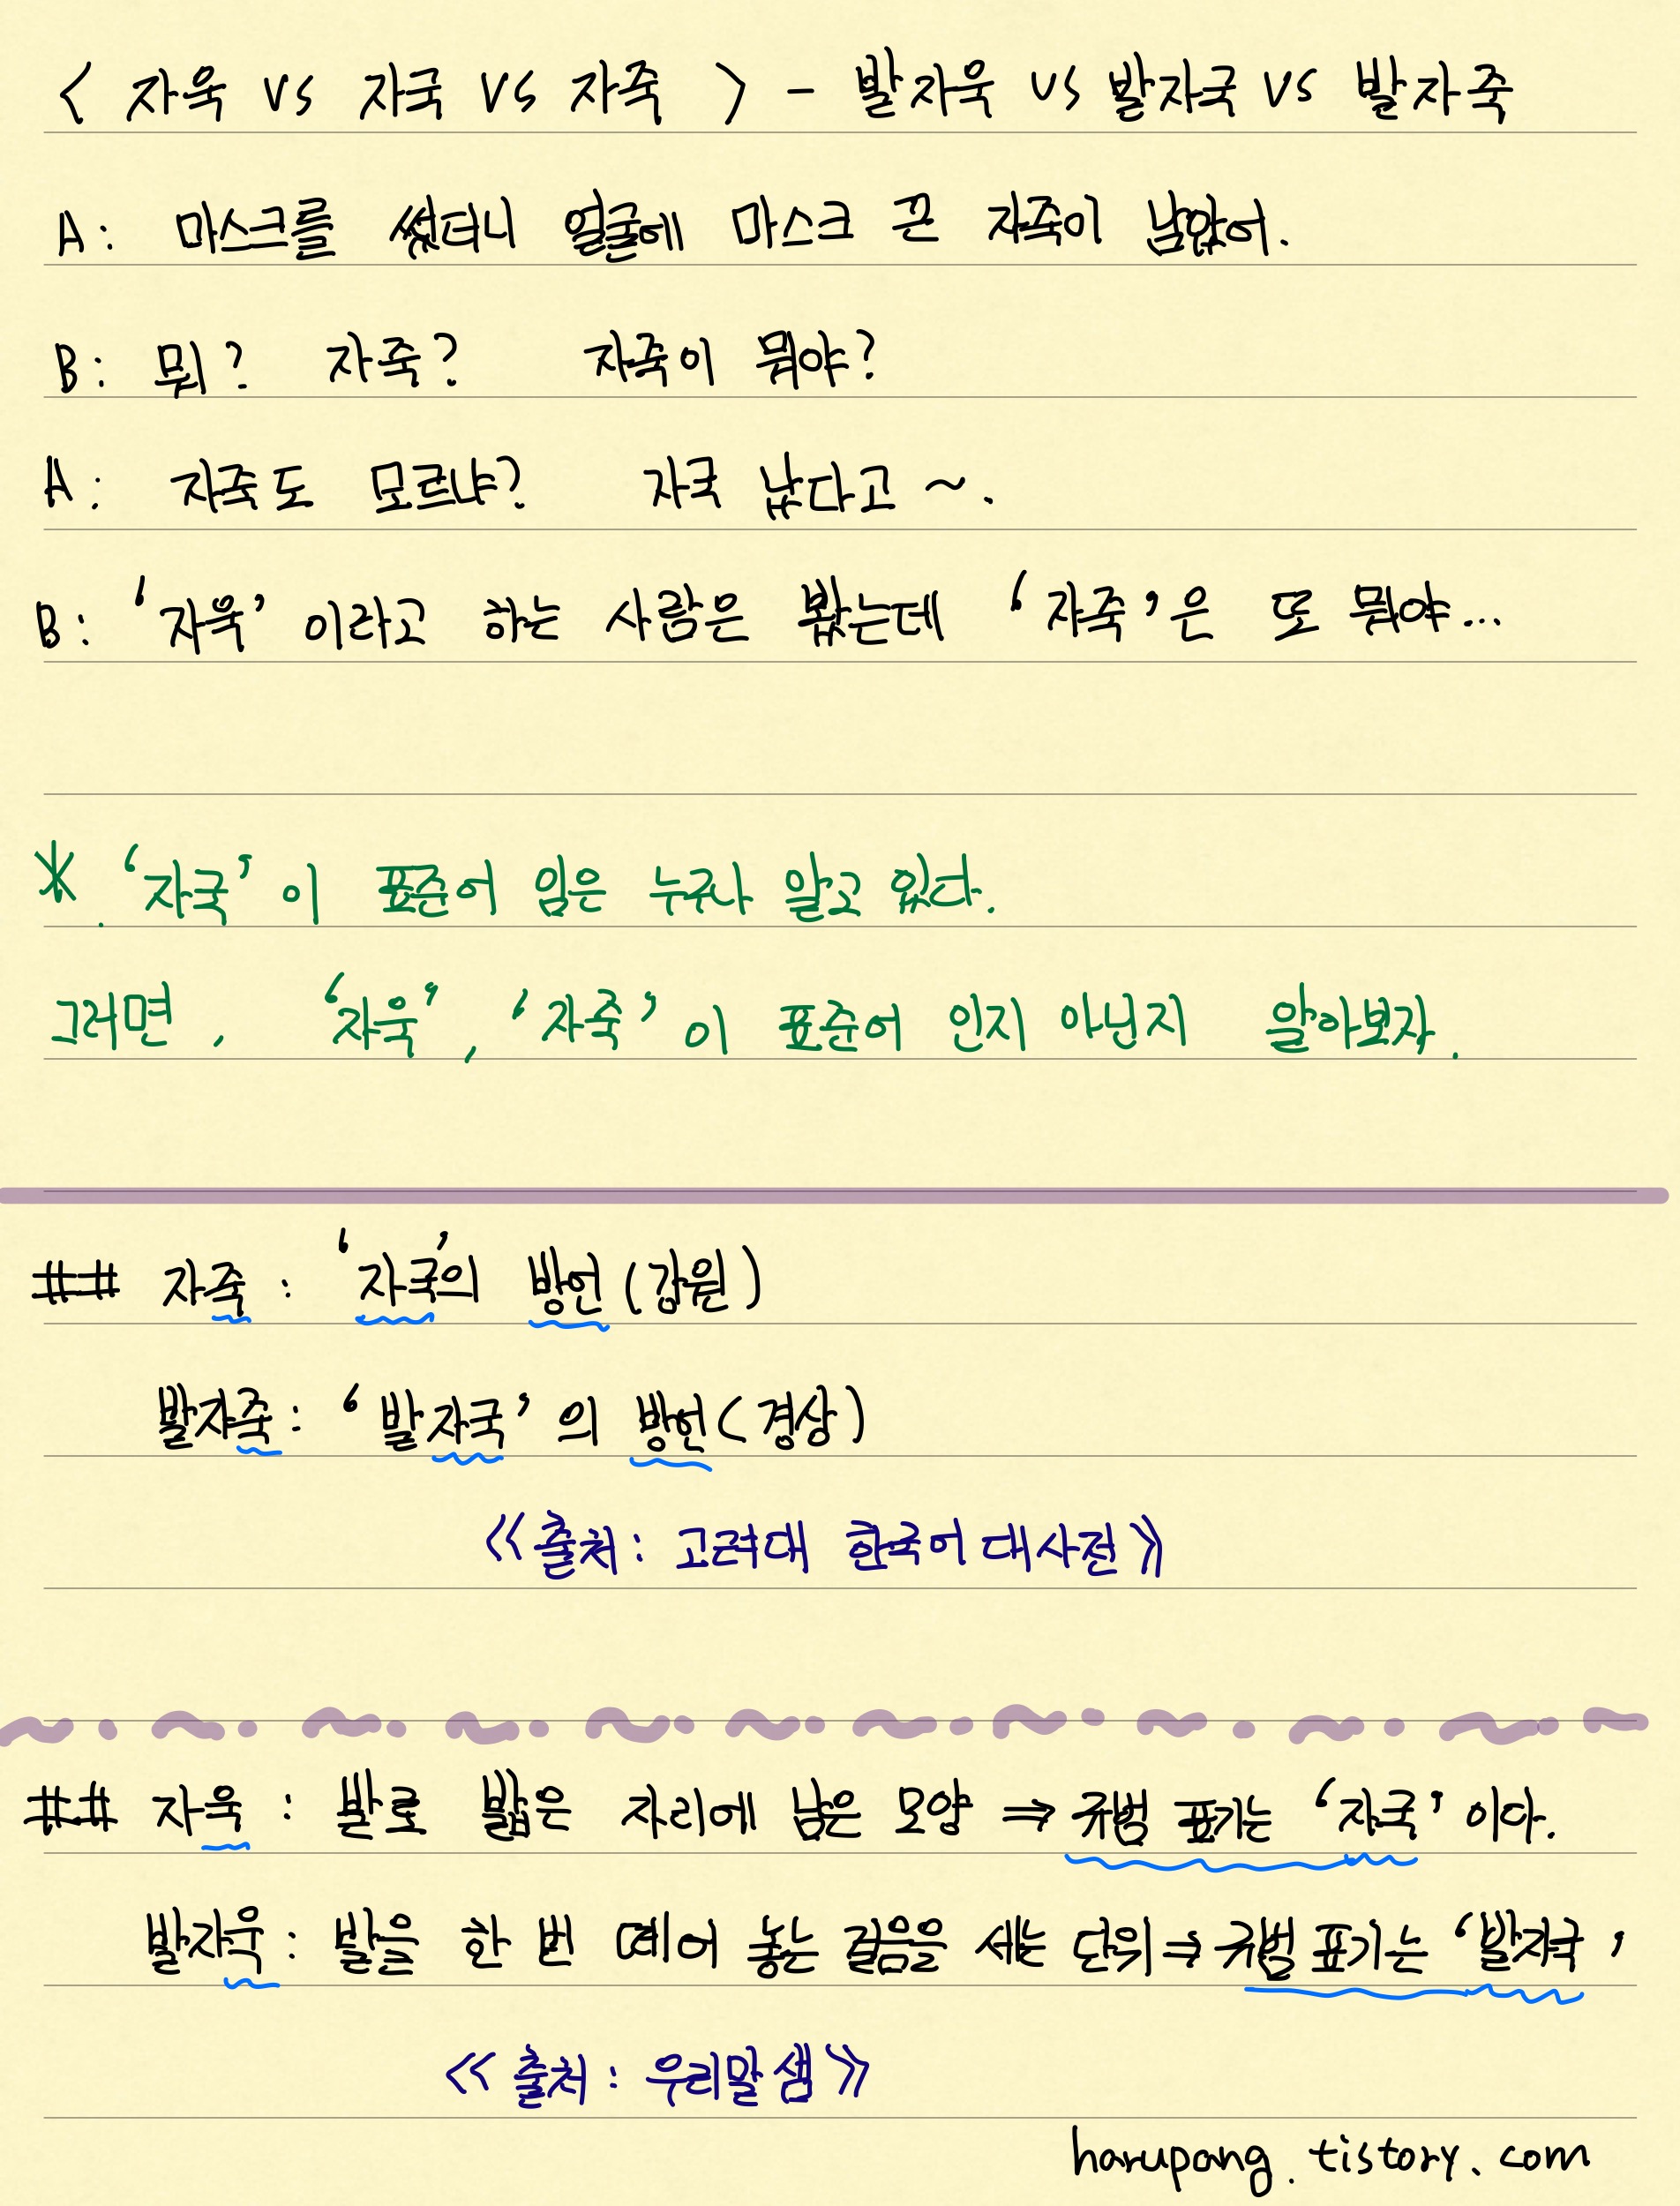 < 자욱 vs 자국 vs 자죽 > - 발자욱 vs 발자국 vs 발자죽
A: 마스크를 썼더니 얼굴에 마스크 끈 자죽이 남았어.
B: 뭐? 자죽? 자죽이 뭐야?
A: 자죽도 모르냐? 자국 났다고 ~.
B: '자욱' 이라고 하는 사람은 봤는데 '자죽'은 또 뭐야...
*. '자국' 이 표준어 임은 누구나 알고 있다.
그러면, '자욱', '자죽' 이 표준어 인지 아닌지 알아보자.
## 자죽 : '자국'의 방언 (강원)
발자죽 : '발자국' 의 방언 (경상)
<< 출처 : 고려대 한국어 대사전 >>
## 자욱 : 발로 밟은 자리에 남은 모양 ⇒ 규범 표기는 '자국' 이다.
발자욱 : 발을 한 번 떼어 놓는 걸음을 세는 단위 ⇒ 규범 표기는 '발자국'
<< 출처 : 우리말샘 >>
harupang.tistory.com